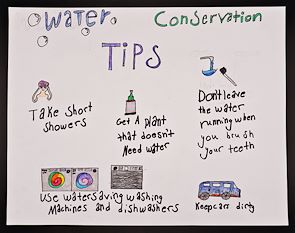 Water Conservation
Tips
Take Short
Showers
Get A Plant
that doesn't
Need water
Don't leave
the water
running when
you brush
your teeth
Use water saving washing
Machines and dishwashers
Keep cars dirty